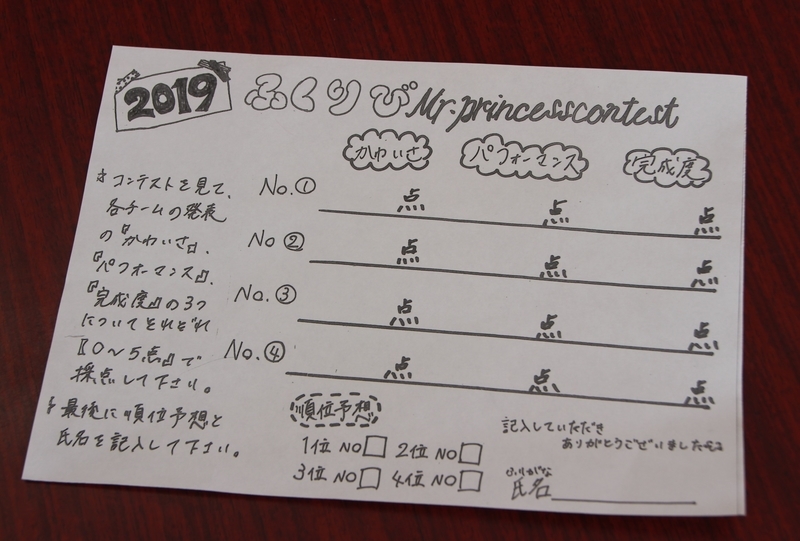 2019 ふくりび Mr.princesscontest
かわいさ パフォーマンス 完成度
No.① 点 点 点
No② 点 点 点
No.③ 点 点 点
No.④ 点 点 点
＊コンテストを見て、
各チームの発表
の『かわいさ』、
『パフォーマンス』、
『完成度』の3つ
についてそれぞれ
『0〜5点』で
採点して下さい。
＊最後に順位予想と
氏名を記入して下さい。
順位予想
1位 NO□ 2位 NO□
3位 NO□ 4位 NO□
記入していただき
ありがとうございました
ふりがな
氏名